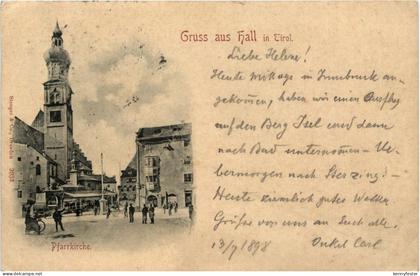 Gruss aus Hall in Tirol.
Liebe Helene!
Heute Mittags in Innsbruck an-
gekommen, haben wir einen Ausflug
auf den Berg Isel und dann
nach Bad unternommen – Ue-
bermorgen nach Sterzing! –
Heute ziemlich gutes Wetter
Grüsse von uns an Euch alle.
13/7 1898 Onkel Carl
Pfarrkirche.
2053
www.delcampe.net
bennyfester